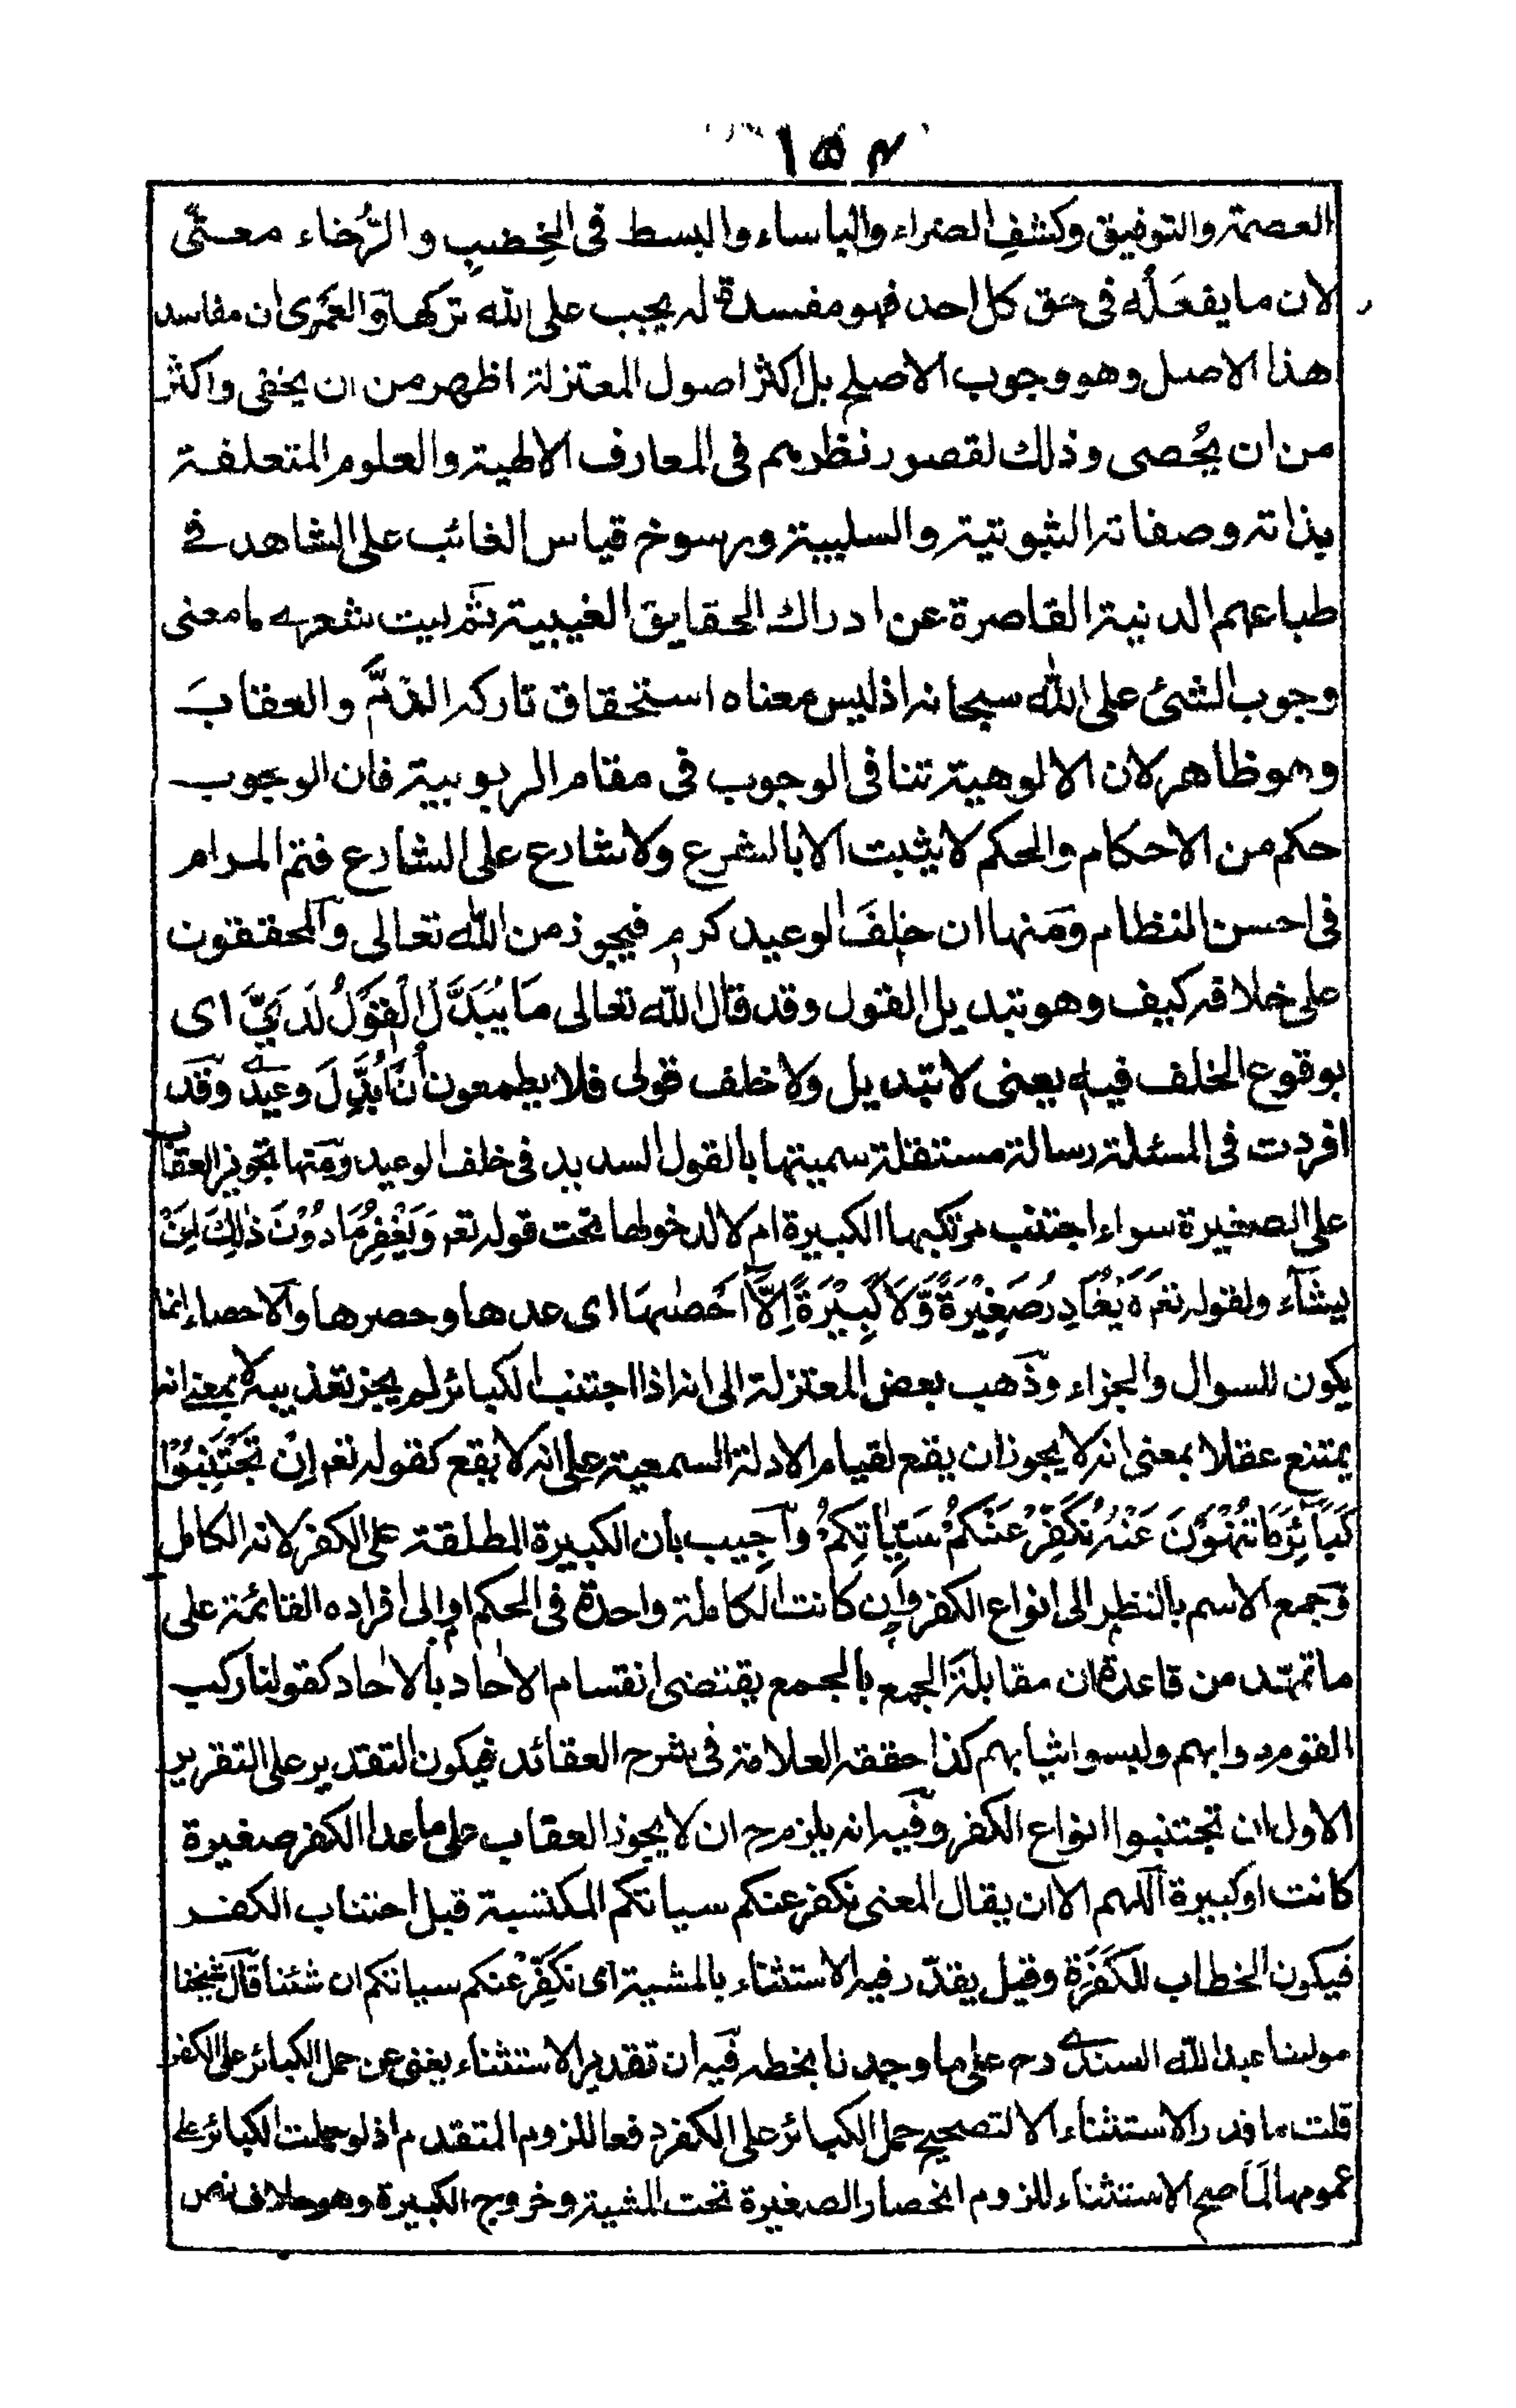 ١٥٤
العصمة والتوفيق وكشف الضراء والبأساء والبسط فى الخِصْبِ والرَّخاء معنًى
لان ما يفعَلْه فى حق كل احد فهو مفسدة له يجب على الله تركها ولَعَمْرى ان مفاسد
هذا الاصل وهو وجوب الاصلح بل اكثر اصول المعتزلة اظهر من ان يخفى واكثر
من ان يُحصى وذلك لقصور نظرهم فى المعارف الالهية والعلوم المتعلقة
بذاته وصفاته الثبوتية والسلبية ورسوخ قياس الغائب على الشاهد فے
طباعهم الدنية القاصرة عن ادراك الحقايق الغيبية ثم ليت شعرے ما معنى
وجوب الشئ على الله سبحانه اذ ليس معناه استحقاق تاركه الذمَّ والعقابَ
وهو ظاهر لان الالوهية تنافى الوجوب فى مقام الربوبية فان الوجوب
حكم من الاحكام والحكم لا يثبت الا بالشرع ولا شارع على الشارع فتم المرام
فى احسن النظام ومنها ان خلفَ الوعيد كرم فيجوز من الله تعالى والمحققون
على خلافه كيف وهو تبديل القول وقد قال الله تعالى مَا يُبَدَّلُ الْقَوْلُ لَدَيَّ اى
بوقوع الخلف فيه يعنى لا تبديل ولا خلف قولى فلا يطمعون أن أُبَدِّلَ وعيدے وقد
افردت فى المسئلة رسالة مستقلة سميتها بالقول السديد فى خلف الوعيد ومنها تجويز العقاب
على الصغيرة سواء اجتنب مرتكبها الكبيرة ام لا لدخولها تحت قوله تعم وَيَغْفِرُ مَا دُوْنَ ذٰلِكَ لِمَنْ
يشآء ولقوله تعم لَا يُغَادِرُ صَغِيْرَةً وَّلَا كَبِيْرَةً اِلَّآ اَحْصٰىهَا اى عدها وحصرها والاحصاء انما
يكون للسوال والجزاء وذهب بعض المعتزلة الى انه اذا اجتنب الكبائر لم يجز تعذيبه لا بمعنى انه
يمتنع عقلا بمعنى انه لا يجوز ان يقع لقيام الادلة السمعية على انه لا يقع كقوله تعم اِنْ تَجْتَنِبُوْا
كَبَآئِرَ مَا تُنْهَوْنَ عَنْهُ نُكَفِّرْ عَنْكُمْ سَيِّاٰتِكُمْ واُجيب بان الكبيرة المطلقة على الكفر لانه الكامل
وجمع الاسم بالنظر الى انواع الكفر وان كانت الكاملة واحدة فى الحكم او الى افراده القائمة على
ما تمهّد من قاعدة ان مقابلة الجمع بالجمع يقتضى انقسام الآحاد بالآحاد كقولنا ركب
القوم دوابهم ولبسوا ثيابهم كذا حققه العلامة فى شرح العقائد فيكون التقدير على التقرير
الاول ان تجتنبوا انواع الكفر وفيه انه يلزم ح ان لا يجوز العقاب على ما عدا الكفر صغيرة
كانت او كبيرة اللهم الا ان يقال المعنى نكفر عنكم سياتكم المكتسبة قبل اجتناب الكفر
فيكون الخطاب للكَفَرَة وقيل يقدّر فيه الاستثناء بالمشية اى نكَفِّرْ عنكم سياتكم ان شئنا قال شيخنا
مولنا عبد الله السندے رحم على ما وجدنا بخطه فيه ان تقدير الاستثناء يغنى عن حمل الكبائر على الكفر
قلت ما قدر الاستثناء الا لتصحيح حمل الكبائر على الكفر دفعا للزوم المتقدم اذ لو حملت الكبائر على
عمومها لما صح الاستثناء للزوم انحصار الصغيرة تحت المشية وخروج الكبيرة وهو خلاف نص